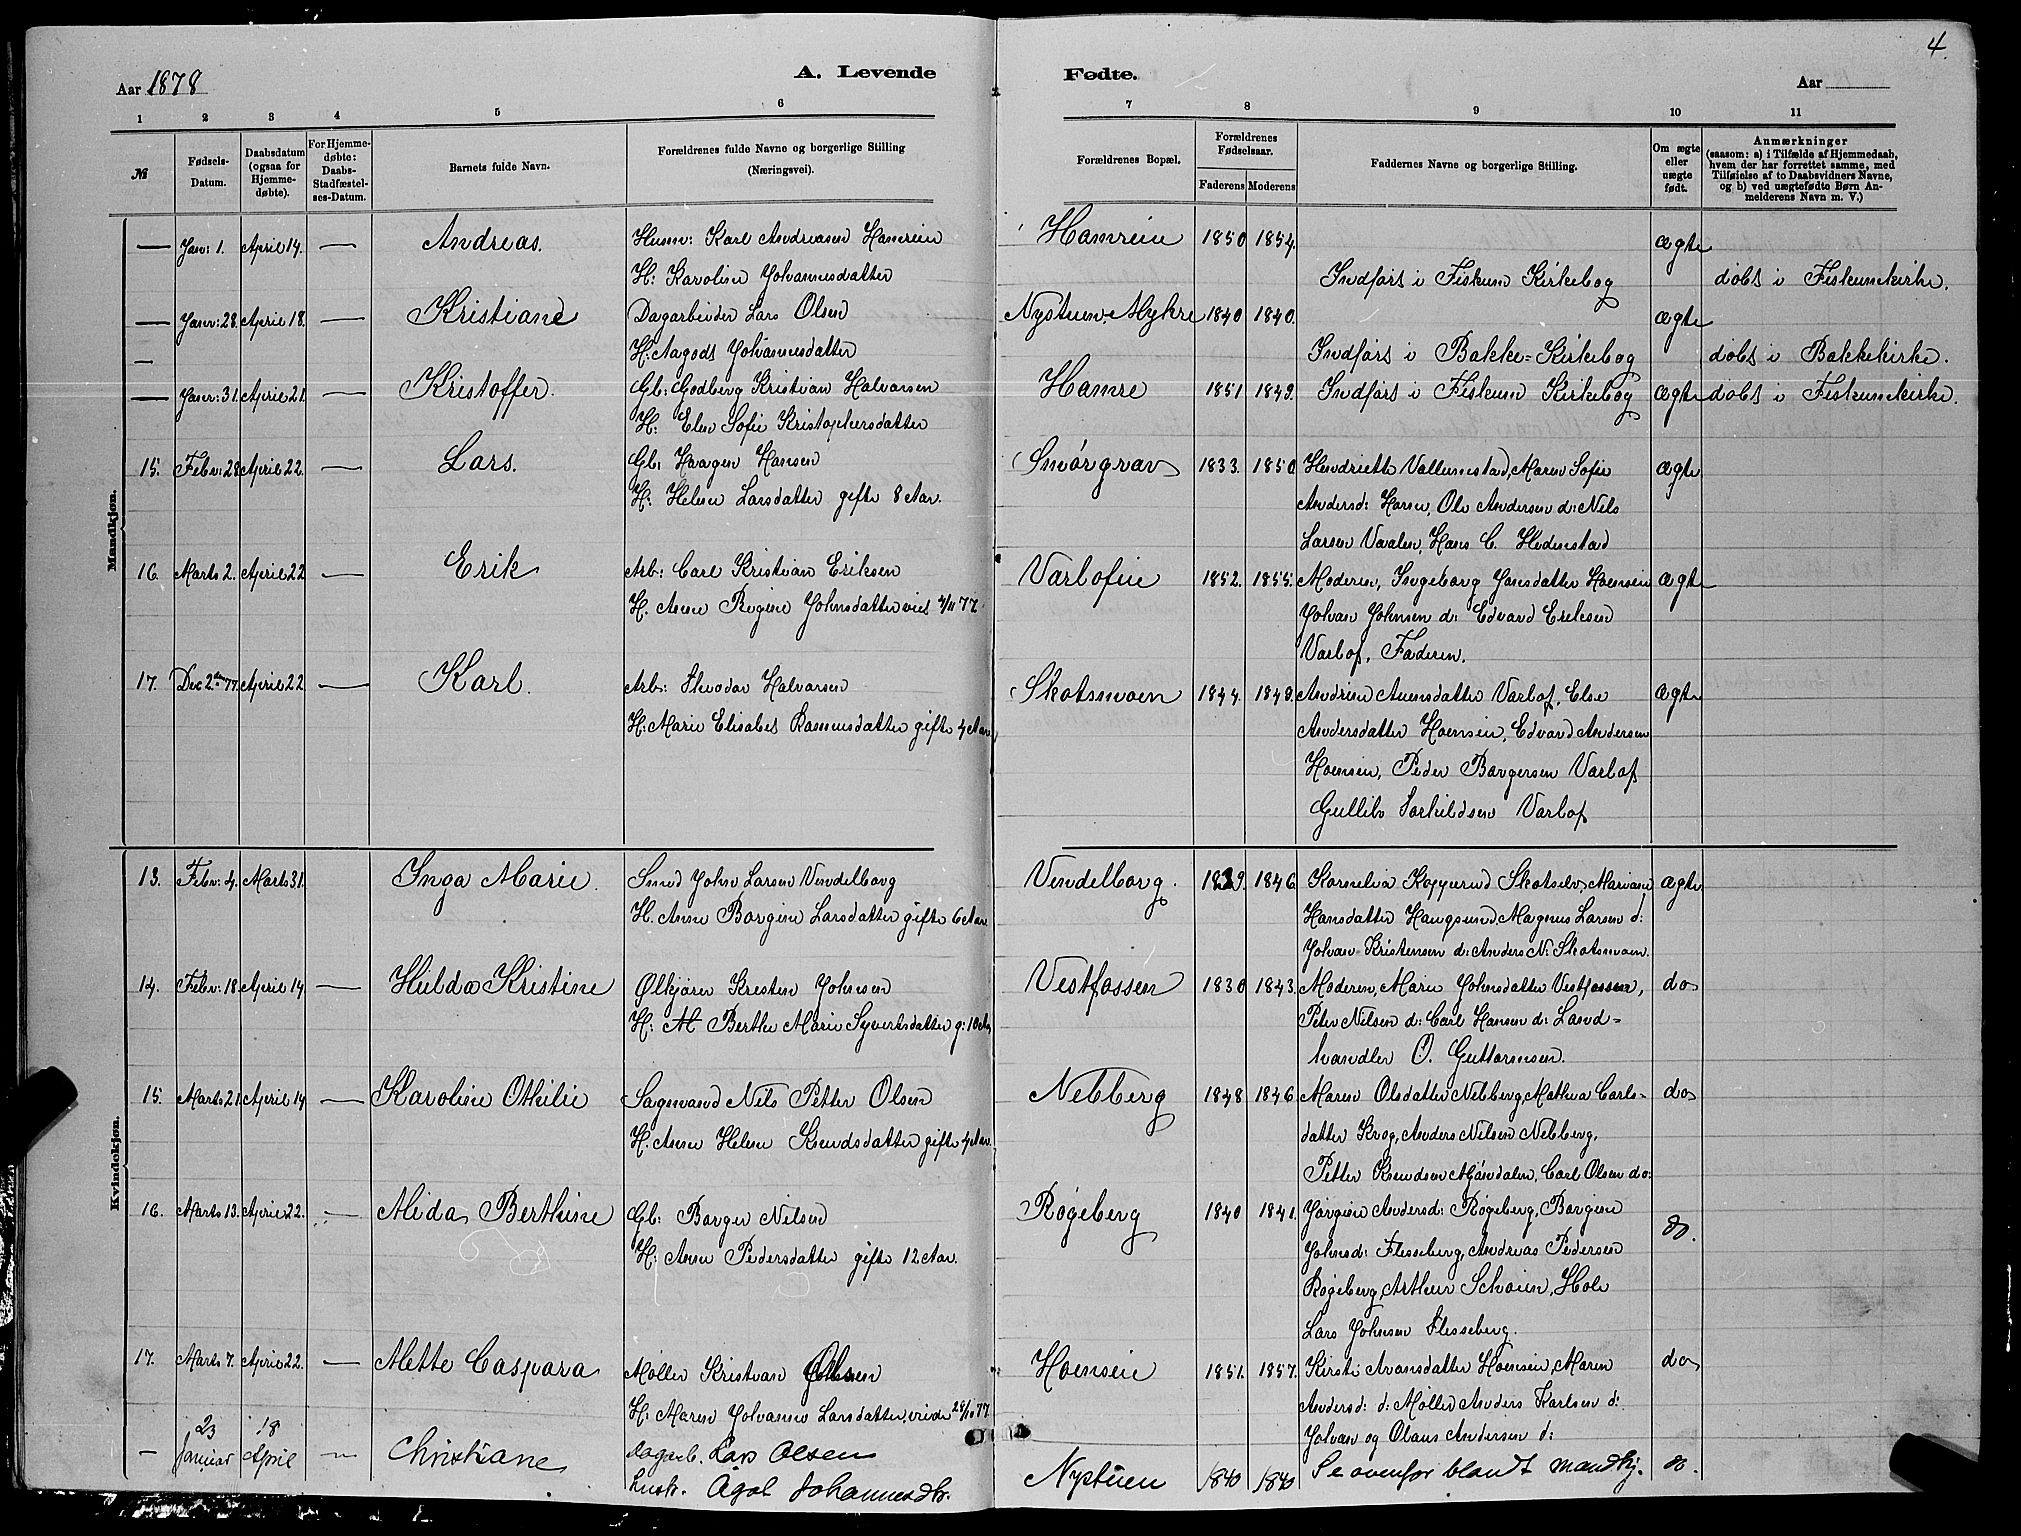 4.
Aar 1878
A. Levende
Fødte.
Aar
1 2 3 4 5 6 7 8 9 10 11
№
Fødsels-Datum.
Daabsdatum (ogsaa for Hjemmedøbte).
For Hjemmedøbte: Daabs-Stadfæstelses-Datum.
Barnets fulde Navn.
Forældrenes fulde Navne og borgerlige Stilling (Næringsvei).
Forældrenes Bopæl.
Forældrenes Fødselsaar.
Faderens Moderens
Faddernes Navne og borgerlige Stilling.
Om ægte eller uægte født.
Anmærkninger (saasom: a) i Tilfælde af Hjemmedaab, hvem der har forrettet samme, med Tilføielse af to Daabsvidners Navne, og b) ved uægtefødte Børn Anmelderens Navn m. V.)
Mandkjøn.
— Janr: 1. April 14. — Andreas. Husm: Karl Andreasen Hamreim Hamreim 1850 1854. ægte
H: Karoline Johannesdatter Indførs i Fiskum Kirkebog døbt i Fiskumkirke.
— Janr: 28. April 18. — Kristiane Dagarbeider Lars Olsen Nystuen, Mykre 1840 1840. ægte
H: Aagodt Johannesdatter Indførs i Bakke-Kirkebog døbt i Bakkekirke.
— Janr: 31. April 21. — Kristoffer. Gb: Godberg Kristian Halvorsen Hamre 1851 1849. Indførs i Fiskum Kirkebog ægte døbt i Fiskumkirke.
H: Elen Sofie Kristophersdatter
15. Febr: 28. April 22. — Lars. Gb: Haagen Hansen Smørgrav 1833. 1850. Henriette Vallumstad, Maren Sofie ægte
H: Helene Larsdatter gifte 8 Aar. Andersd: Horne, Ole Andersen d: Nils
Larsen Vaalen, Hans C. Hedenstad
16. Marts 2. April 22 — Erik Arb: Carl Kristian Eriksen Varlofeie 1852. 1855. Moderen, Ingeborg Jansdatter Hoenseie ægte
H. Anne Regine Johnsdatter viet /11 77. Johan Johnsen d: Edvard Eriksen
Varlof, Faderen.
17. Dec 2den 77. April 22 — Karl. Arb: Theodor Halvorsen Skotsmoen 1844. 1848. Andrine Avensdatter Varlof, Else ægte
H: Marie Elisabet Rasmusdatter gifte 4 Aar Andersdatter Hoenseie, Edvard Andersen
Hoenseie, Peder Borgersen Varlof
Gullik Torkildsen Varlof
Kvindekjøn.
13. Febr: 4. Marts 31. Inga Marie. Smed John Larsen Vendelborg Vendelborg. 1839. 1846. Kornelia Kopperud Skotselv, Mariane ægte
H. Anne Borgine Larsdatter gifte 6 Aar. Hansdatter Haugsund, Magnus Larsen d:
Johan Kristensen d: Anders N. Skotsmoen.
14. Febr: 18. April 14 — Hulda Kristine Ølkjører Kresten Johnsen Vestfossen 1830 1843. Moderen, Marie Johnsdatter Vestfossen, do
H: M Berthe Marie Syvertsdatter g: 10 Aar Peter Nilsen d: Carl Hansen d: Land-
handler O. Guttormsen.
15. Marts 21. April 14 — Karoline Othilie Sagmand Nils Petter Olsen Nebberg 1848 1846. Maren Olsdatter Nebberg, Mathea Carls- do
H. Anne Helene Knudsdatter gifte 4 Aar. datter Krog, Anders Nilsen Nebberg,
Petter Knudsen Mjøndalen, Carl Olsen do:
16. Marts 13. April 22. — Alida Berthine Gb: Borger Nilsen Røgeberg 1840 1841. Jørgine Andersd: Røgeberg, Borgine do.
H: Anne Pedersdatter gifte 12 Aar. Johnsd: Flesseberg, Andreas Pedersen
Røgeberg, Arthur Schøien, Hole
Lars Johnsen Flesseberg.
17. Marts 7. April 22. — Mette Caspara Møller Kristian Olsen Hoenseie 1851. 1857. Kirsti Avensdatter Hoenseie, Maren do
H: Maren Johanne Larsdatter, viede 28/10 77. Andersd: d: Møller Anders Karlsen d:
Johan og Olaus Andersen d:
— 23 Januar 18 April — Christiane Dagarb. Lars Olsen Nystuen 1840 1840 Se ovenfor blandt mandkj. do.
hustr. Agot Johannesdtr.